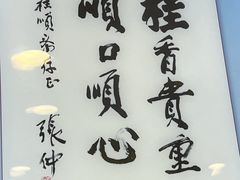 桂香貴重
順口順心
桂順齋存正
張仲